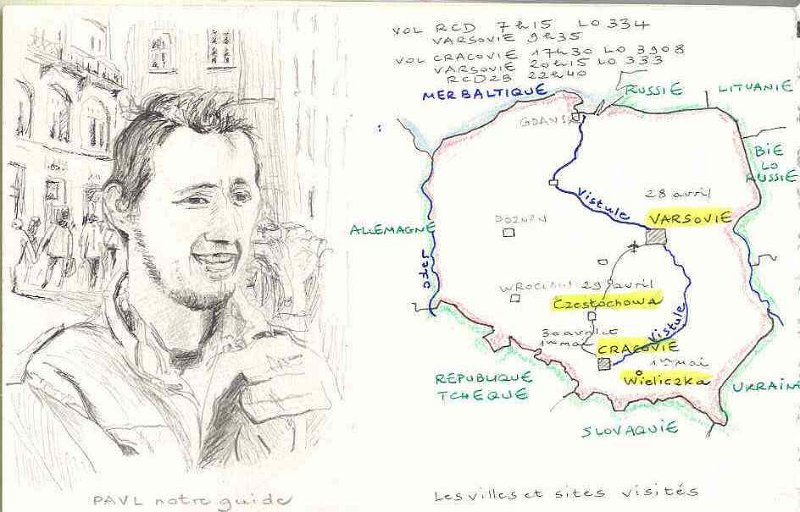 VOL RCD 7h15 LO 334
VARSOVIE 9h35
VOL CRACOVIE 17h30 LO 3908
VARSOVIE 20h15 LO 333
RCD2B 22h40
MER BALTIQUE
RUSSIE
LITUANIE
GDANSK
BIE
LO
RUSSIE
28 avril
Vistule
VARSOVIE
POZNAN
ALLEMAGNE
oder
WROCLAW
29 avril
Częstochowa
Vistule
30 avril et
1er mai
CRACOVIE
1er mai
Wieliczka
REPUBLIQUE
TCHEQUE
UKRAINE
SLOVAQUIE
PAUL notre guide
Les villes et sites visités